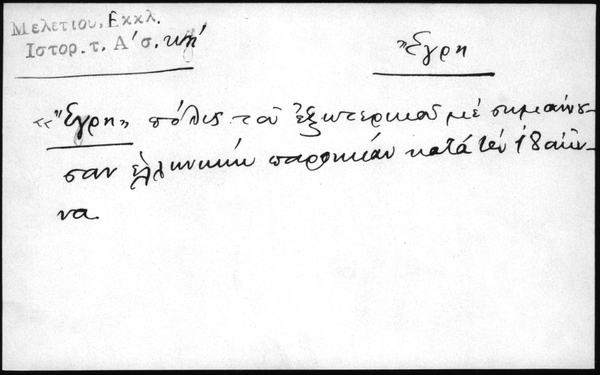 Μελετίου, Εκκλ.
Ιστορ. τ. Α' σ. κη'
Ἔγρη
«Ἔγρη» πόλις τοῦ ἐξωτερικοῦ μέ σημαίνου-
σαν ἑλληνικήν παροικίαν κατά τόν 18 αἰῶ-
να.